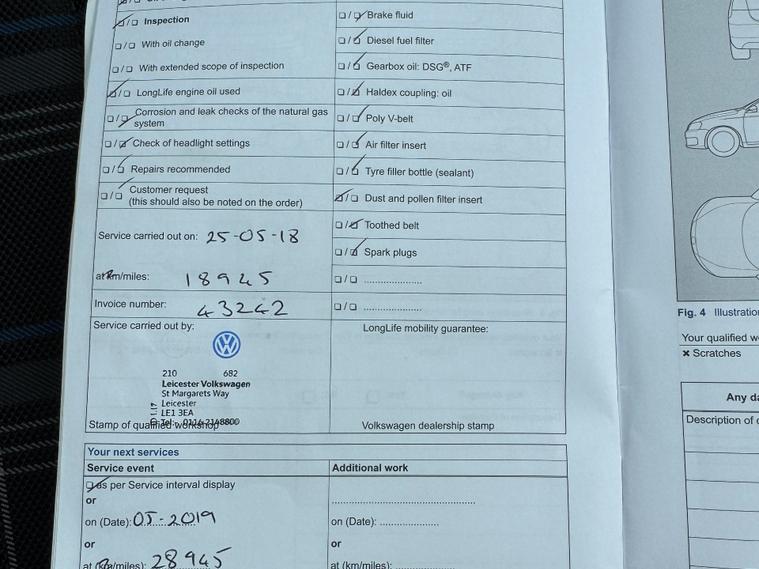 Inspection
With oil change
With extended scope of inspection
LongLife engine oil used
Corrosion and leak checks of the natural gas
system
Check of headlight settings
Repairs recommended
Customer request
(this should also be noted on the order)
Service carried out on: 25-05-18
at km/miles: 18945
Invoice number: 43242
Service carried out by:
210 682
Leicester Volkswagen
St Margarets Way
Leicester
LE1 3EA
Stamp of qualified workshop
Brake fluid
Diesel fuel filter
Gearbox oil: DSG®, ATF
Haldex coupling: oil
Poly V-belt
Air filter insert
Tyre filler bottle (sealant)
Dust and pollen filter insert
Toothed belt
Spark plugs
LongLife mobility guarantee:
Volkswagen dealership stamp
Your next services
Service event
as per Service interval display
or
on (Date): 05-2019
or
at (km/miles): 28945
Additional work
on (Date):
or
at (km/miles):
Fig. 4 Illustration
Your qualified
× Scratches
Any
Description of